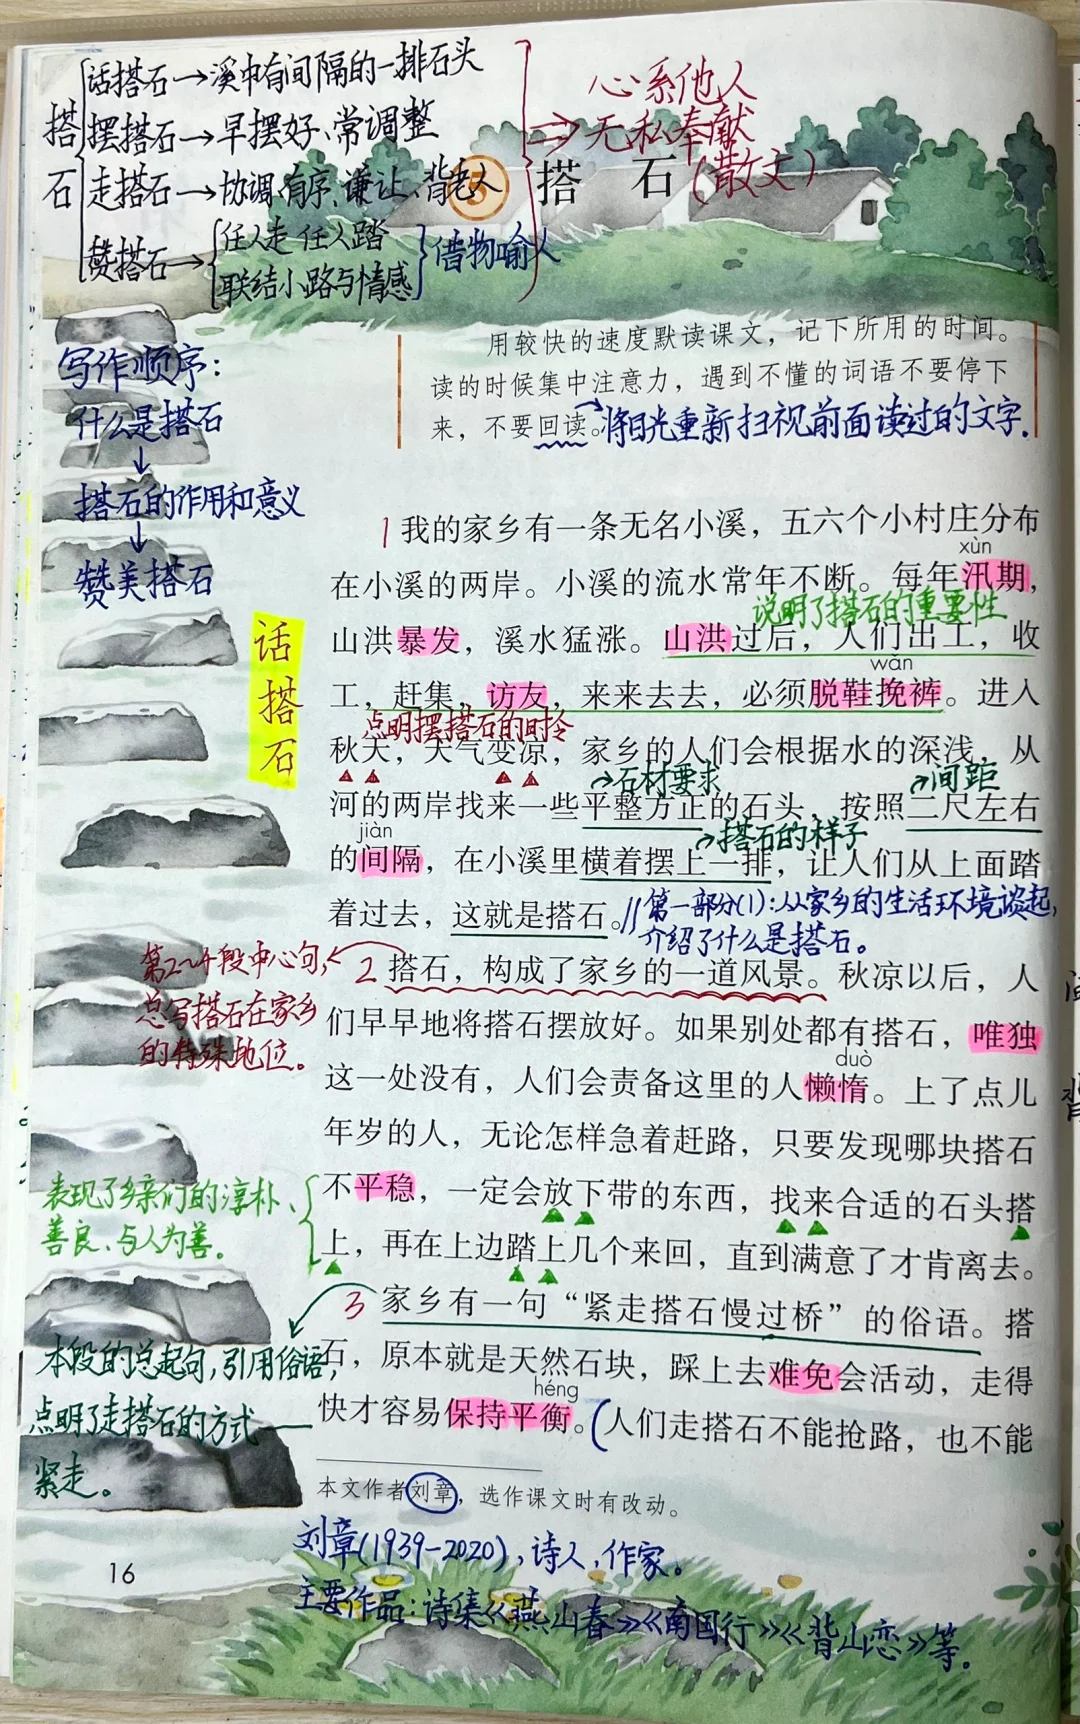 搭石
话搭石→溪中有间隔的一排石头
摆搭石→早摆好、常调整
走搭石→协调、有序、谦让、背老人
赞搭石→
任人走 任人踏
联结小路与情感
借物喻人
心系他人
⇒无私奉献
(散文)
搭 石
用较快的速度默读课文，记下所用的时间。
读的时候集中注意力，遇到不懂的词语不要停下
来，不要回读。
将目光重新扫视前面读过的文字.
写作顺序：
什么是搭石
↓
搭石的作用和意义
↓
赞美搭石
话搭石
1 我的家乡有一条无名小溪，五六个小村庄分布
xùn
在小溪的两岸。小溪的流水常年不断。每年汛期，
说明了搭石的重要性
山洪暴发，溪水猛涨。山洪过后，人们出工，收
wǎn
工，赶集，访友，来来去去，必须脱鞋挽裤。进入
点明摆搭石的时令
秋天，天气变凉，家乡的人们会根据水的深浅，从
→石材要求
→间距
河的两岸找来一些平整方正的石头，按照二尺左右
jiàn
→搭石的样子
的间隔，在小溪里横着摆上一排，让人们从上面踏
着过去，这就是搭石。
//第一部分(1)：从家乡的生活环境谈起,
介绍了什么是搭石。
第2~4段中心句,
总写搭石在家乡
的特殊地位。
2 搭石，构成了家乡的一道风景。秋凉以后，人
们早早地将搭石摆放好。如果别处都有搭石，唯独
duò
这一处没有，人们会责备这里的人懒惰。上了点儿
年岁的人，无论怎样急着赶路，只要发现哪块搭石
不平稳，一定会放下带的东西，找来合适的石头搭
上，再在上边踏上几个来回，直到满意了才肯离去。
表现了乡亲们的淳朴、
善良、与人为善。
3 家乡有一句“紧走搭石慢过桥”的俗语。搭
石，原本就是天然石块，踩上去难免会活动，走得
héng
快才容易保持平衡。(人们走搭石不能抢路，也不能
本段的总起句,引用俗语,
点明了走搭石的方式——
紧走。
本文作者刘章，选作课文时有改动。
刘章(1939-2020),诗人,作家。
主要作品：诗集《燕山春》《南国行》《背山恋》等.
16